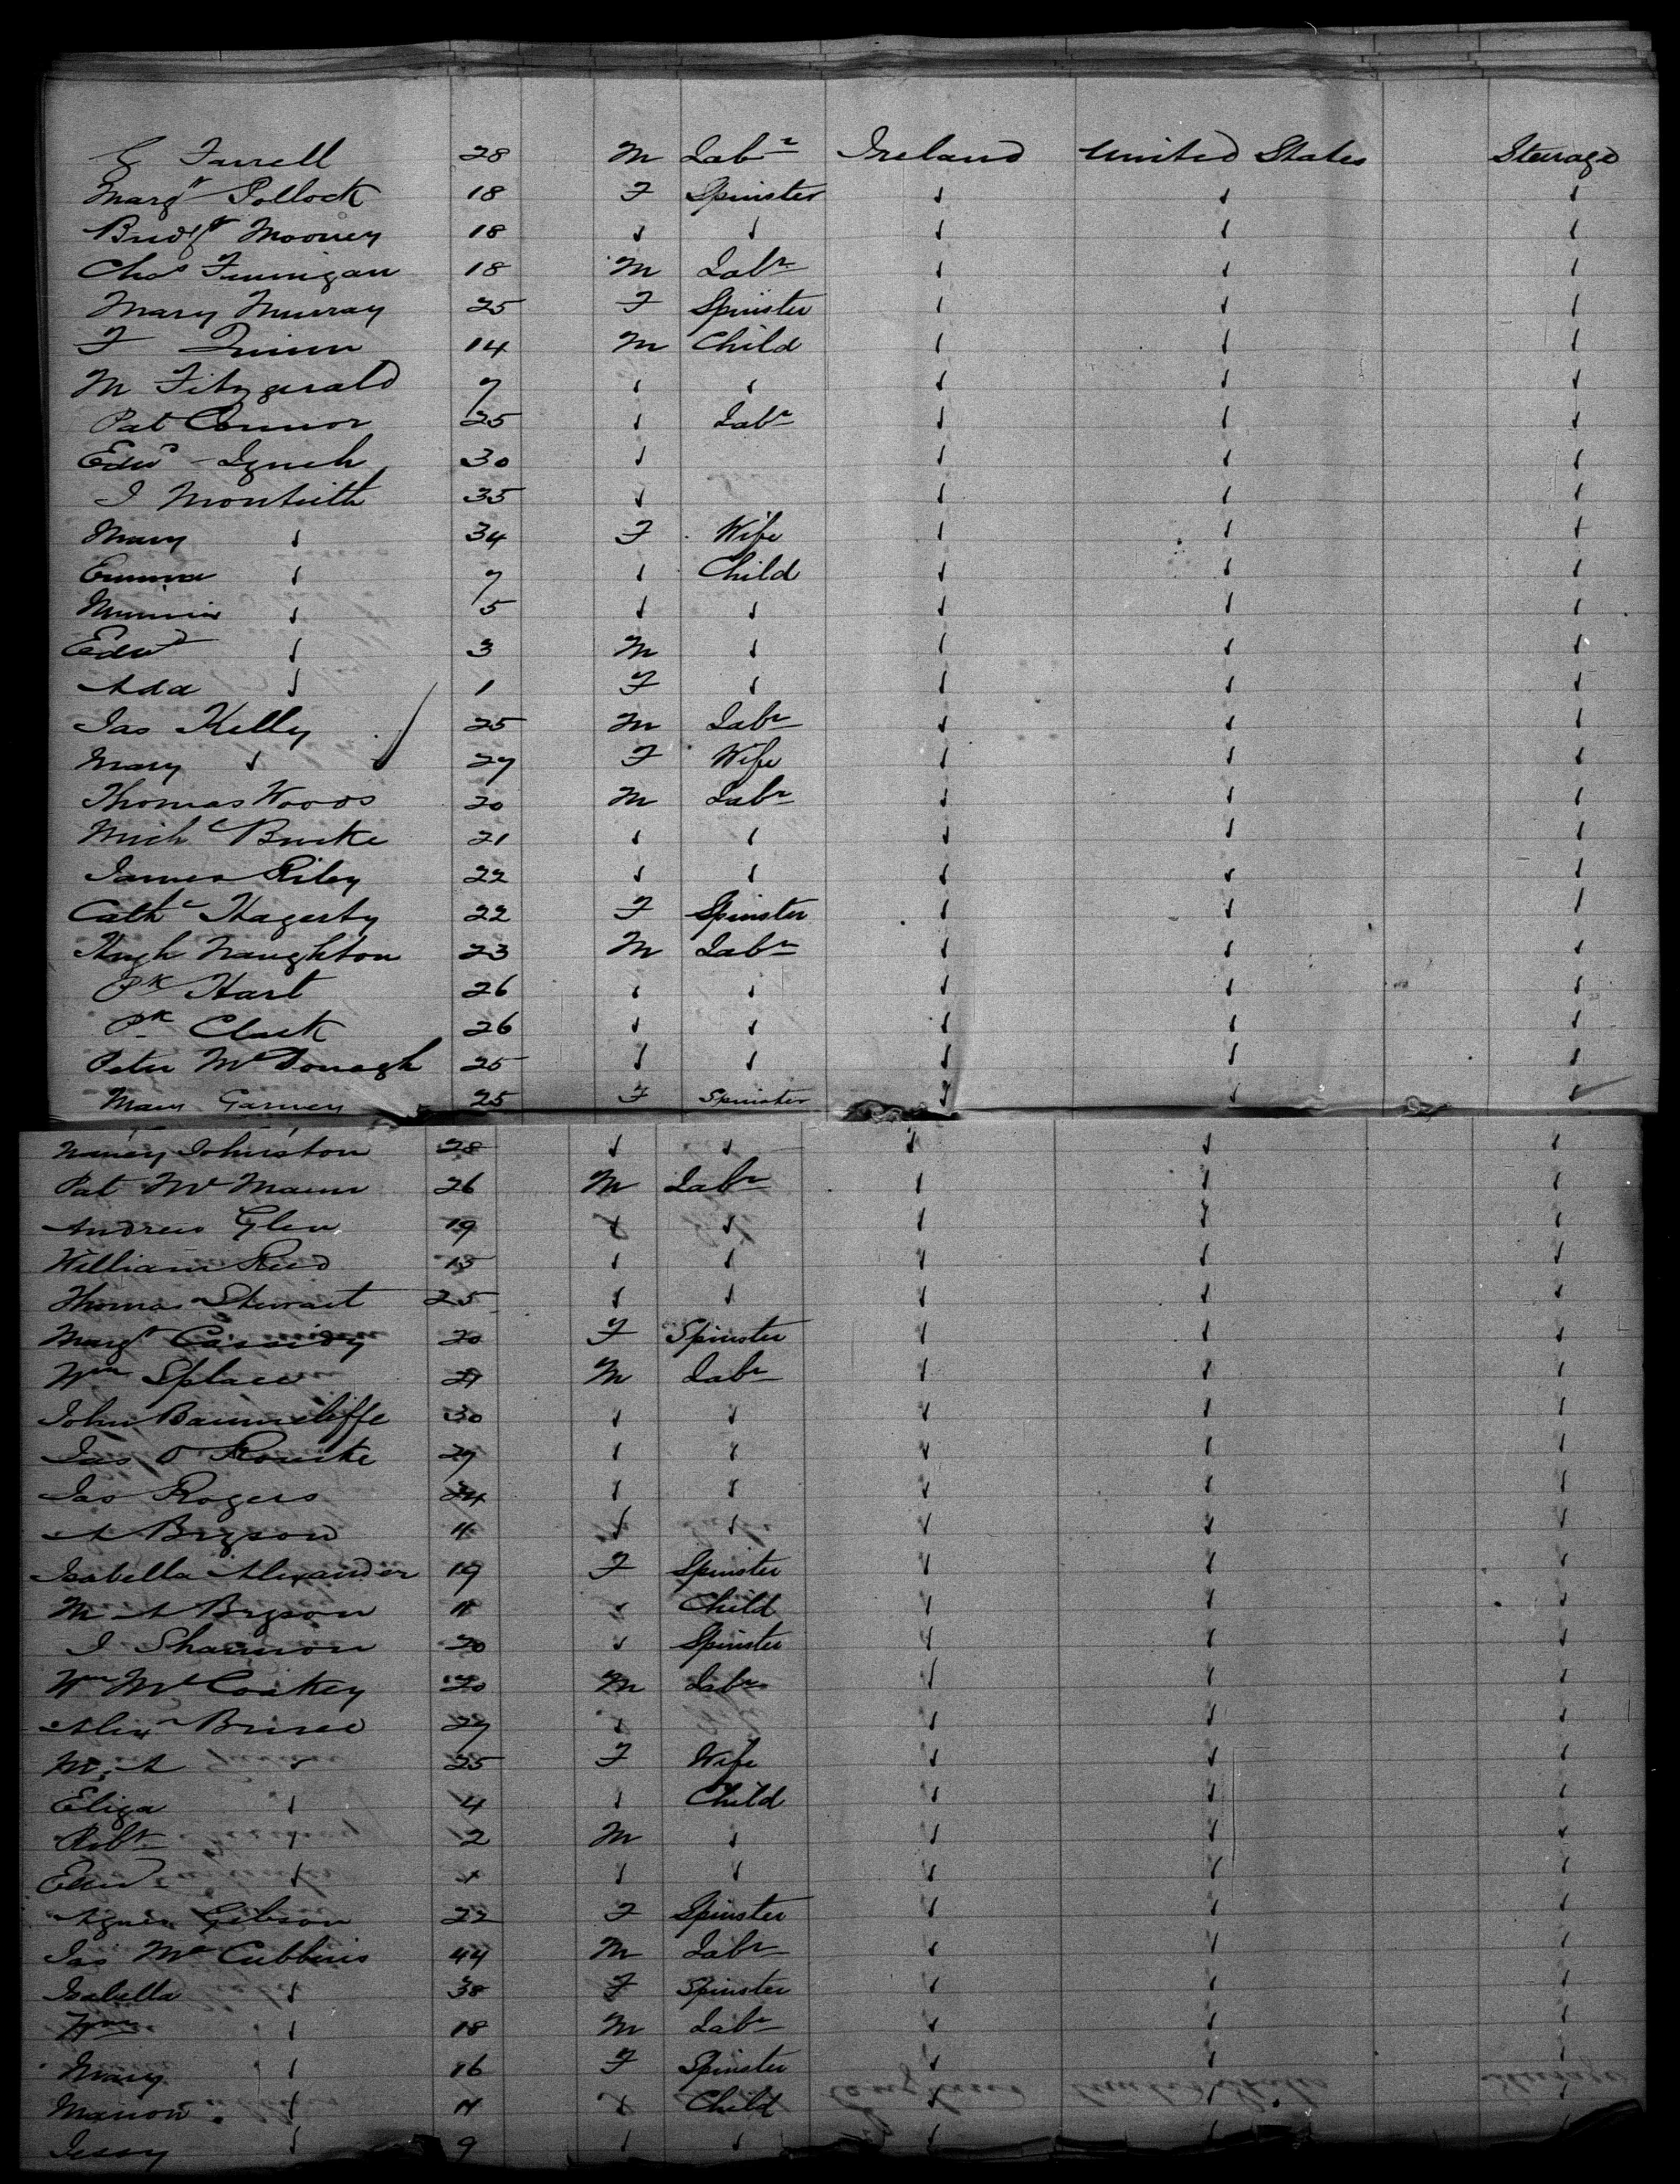 G Farrell 28 M Labr Ireland United States Steerage
Margt Pollock 18 F Spinster ✓ ✓ ✓
Bridgt Mooney 18 ✓ ✓ ✓ ✓ ✓
Chas Finnigan 18 M Labr ✓ ✓ ✓
Mary Murray 25 F Spinster ✓ ✓ ✓
F Quinn 14 M Child ✓ ✓ ✓
M Fitzgerald 7 ✓ ✓ ✓ ✓ ✓
Pat Connor 25 ✓ Labr ✓ ✓ ✓
Edwd Lynch 30 ✓ ✓ ✓ ✓
J Monteith 35 ✓ ✓ ✓ ✓
Mary ✓ 34 F Wife ✓ ✓ ✓
Emma ✓ 7 ✓ Child ✓ ✓ ✓
Minnie ✓ 5 ✓ ✓ ✓ ✓ ✓
Edwd ✓ 3 M ✓ ✓ ✓ ✓
Ada ✓ 1 F ✓ ✓ ✓ ✓
Jas Kelly 25 M Labr ✓ ✓ ✓
Mary ✓ 27 F Wife ✓ ✓ ✓
Thomas Woods 20 M Labr ✓ ✓ ✓
Michl Burke 21 ✓ ✓ ✓ ✓ ✓
James Riley 22 ✓ ✓ ✓ ✓ ✓
Cathe Hagerty 22 F Spinster ✓ ✓ ✓
Hugh Naughton 23 M Labr ✓ ✓ ✓
Pk Hart 26 ✓ ✓ ✓ ✓ ✓
Pk Clark 26 ✓ ✓ ✓ ✓ ✓
Peter McDonagh 25 ✓ ✓ ✓ ✓ ✓
Mary Garvey 25 F Spinster ✓ ✓ ✓
Nancy Johnston 28 ✓ ✓ ✓ ✓ ✓
Pat McMann 26 M Labr ✓ ✓ ✓
Andrew Glen 19 ✓ ✓ ✓ ✓ ✓
William Reed 15 ✓ ✓ ✓ ✓ ✓
Thomas Stewart 25 ✓ ✓ ✓ ✓ ✓
Margt Cassidy 20 F Spinster ✓ ✓ ✓
Wm 21 M Labr ✓ ✓ ✓
John 30 ✓ ✓ ✓ ✓ ✓
Jas O Rourke 27 ✓ ✓ ✓ ✓ ✓
Jas Rogers 24 ✓ ✓ ✓ ✓ ✓
A Bryson 11 ✓ ✓ ✓ ✓ ✓
Isabella Alexander 19 F Spinster ✓ ✓ ✓
M A Bryson 11 ✓ Child ✓ ✓ ✓
J Shannon 20 ✓ Spinster ✓ ✓ ✓
Wm McCoskey 20 M Labr ✓ ✓ ✓
Alexr Bruce 27 ✓ ✓ ✓ ✓
M. A ✓ 25 F Wife ✓ ✓ ✓
Eliza ✓ 4 ✓ Child ✓ ✓ ✓
Robt ✓ 2 M ✓ ✓ ✓ ✓
Edwd ✓ 1 ✓ ✓ ✓ ✓ ✓
Agnes Gibson 22 F Spinster ✓ ✓ ✓
Jas McCubbins 44 M Labr ✓ ✓ ✓
Isabella ✓ 38 F Spinster ✓ ✓ ✓
Wm ✓ 18 M Labr ✓ ✓ ✓
Mary ✓ 16 F Spinster ✓ ✓ ✓
Marion ✓ 11 ✓ Child ✓ ✓ ✓
Jessy ✓ 9 ✓ ✓ ✓ ✓ ✓